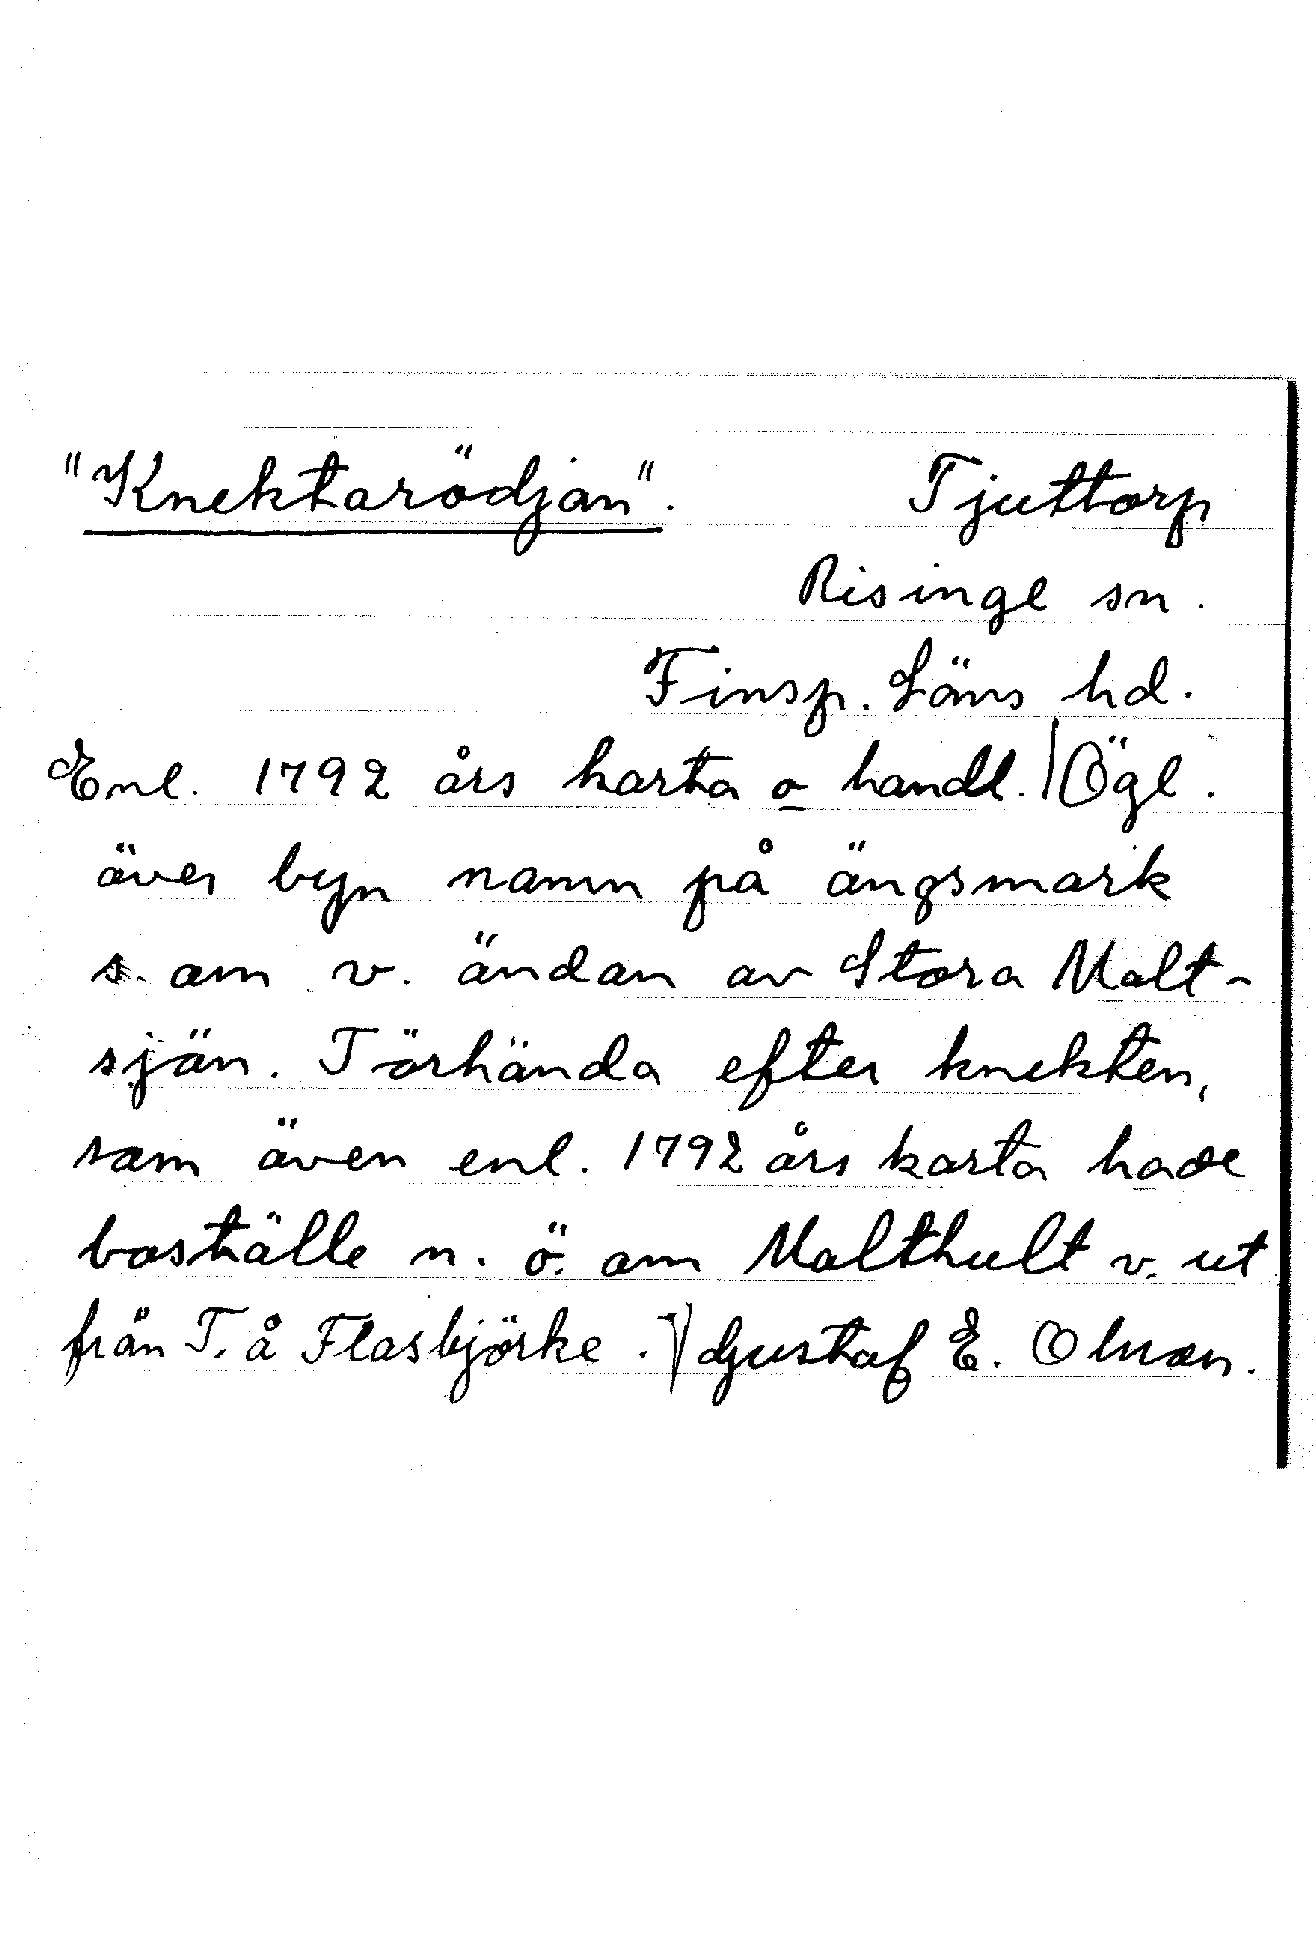 "Knektarödjan". Tjuttorp
Risinge sn.
Finsp. Läns hd.
Enl. 1792 års karta o handl. / Ögl.
över byn namn på ängsmark
s. om v. ändan av Stora Malt-
sjön. Törhända efter knekten,
som även enl. 1792 års karta hade
boställe n. ö. om Malthult v. ut
från T. å Flasbjörke. / Gustaf E.